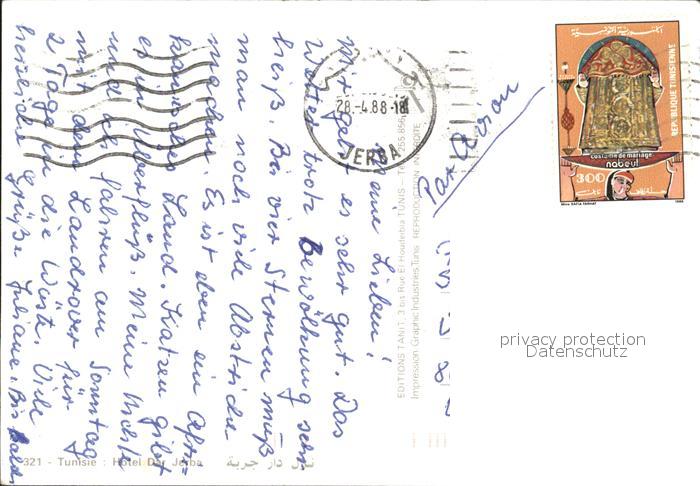 Meine Lieben!
Mir geht es sehr gut. Das
Wetter trotz Bewölkung sehr
heiß. Bei vier Sternen muß
man noch viele Abstriche
machen. Es ist eben ein Afri=
kanisches Land. Katzen gibt
es im Überfluß. Meine Nichte
und ich fahren am Sonntag
mit dem Landrover für
2 Tage in die Wüste. Viele
herzliche Grüße Juliane. Bis bald
Par Avion
28.-4.88-18
JERBA
REPUBLIQUE TUNISIENNE
costume de mariage
nabeul
300
1988
EDITIONS TANIT, 3 bis Rue El Houdeibia TUNIS - Tél. 255.856
Impression Graphic Industries, Tunis REPRODUCTION INTERDITE
privacy protection
Datenschutz
321 - Tunisie : Hôtel Dar Jerba نزل دار جربة